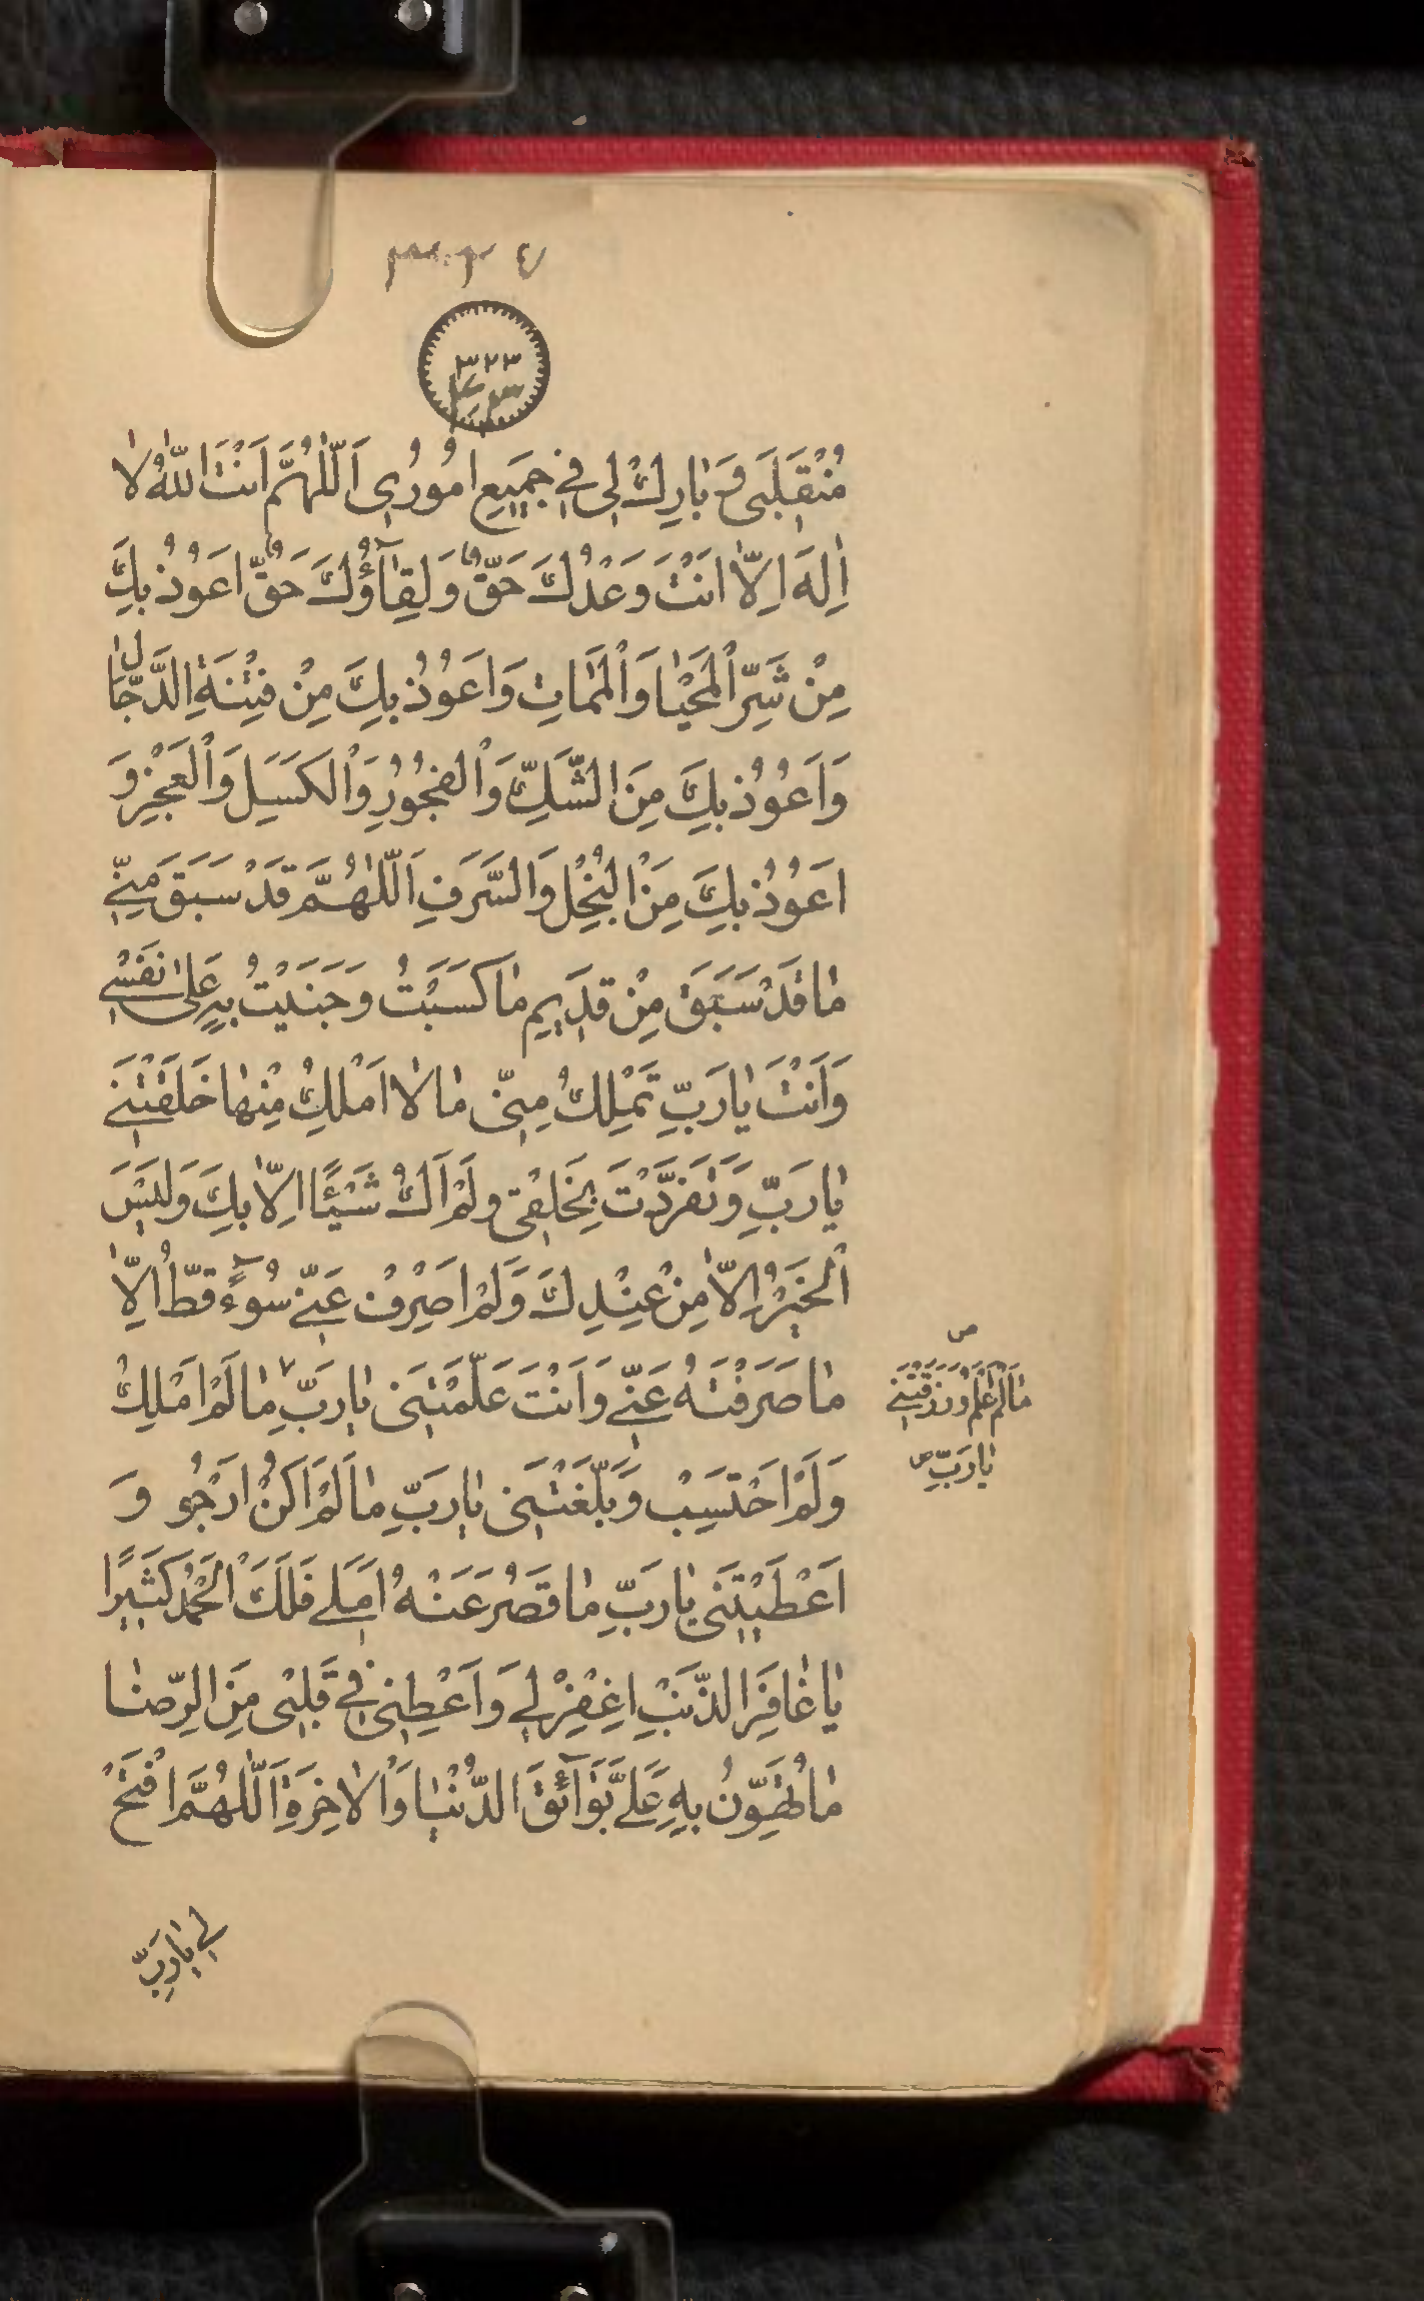 ٣٢٣
مُنْقَلَبَی وَ بٰارِكْ لِی فِی جَمِیعِ اُمُورُِی اَللّٰهُمَّ اَنْتَ اللّٰهُ لٰا
اِلٰهَ اِلّٰا اَنْتَ وَعْدُكَ حَقٌّ وَ لِقٰاۤؤُكَ حَقٌّ اَعُوُذُ بِكَ
مِنْ شَرِّ الْمَحْیٰا وَ الْمَمٰاتِ وَ اَعُوُذُ بِكَ مِنْ فِتْنَةِ الدَّجّٰالِ
وَ اَعُوُذُ بِكَ مِنَ الشَّكِّ وَ الْفُجُوُرِ وَ الْكَسَلِ وَ الْعَجْزِ وَ
اَعُوُذُ بِكَ مِنَ الْبُخْلِ وَ السَّرَفِ اَللّٰهُمَّ قَدْ سَبَقَ مِنّی
مٰا قَدْ سَبَقَ مِنْ قَدِیمِ مٰا كَسَبْتُ وَ جَنَیْتُ بِهِ عَلٰی نَفْسِی
وَ اَنْتَ یٰا رَبِّ تَمْلِكُ مِنّی مٰا لٰا اَمْلِكُ مِنْهٰا خَلَقْتَنِی
یٰا رَبِّ وَ تَفَرَّدْتَ بِخَلْقِی وَ لَمْ اَكُ شَیْئًا اِلّٰا بِكَ وَ لَیْسَ
الْخَیْرُ اِلّٰا مِنْ عِنْدِكَ وَ لَمْ اَصْرِفْ عَنّی سُوۤءً قَطُّ اِلّٰا
مٰا صَرَفْتَهُ عَنّی وَ اَنْتَ عَلَّمْتَنِی یٰا رَبِّ مٰا لَمْ اَمْلِكْ
مٰا لَمْ اَعْلَمْ وَ رَزَقْتَنِی
یٰا رَبِّ ص
وَ لَمْ اَحْتَسِبْ وَ بَلَّغْتَنِی یٰا رَبِّ مٰا لَمْ اَكُنْ اَرْجُو وَ
اَعْطَیْتَنِی یٰا رَبِّ مٰا قَصُرَ عَنْهُ اَمَلِی فَلَكَ الْحَمْدُ كَثِیرًا
یٰا غٰافِرَ الذَّنْبِ اغْفِرْ لِی وَ اَعْطِنِی فِی قَلْبِی مِنَ الرِّضٰا
مٰا تُهَوِّنُ بِهِ عَلَیَّ بَوٰاۤئِقَ الدُّنْیٰا وَ الْاٰخِرَةِ اَللّٰهُمَّ افْتَحْ
لی یٰا رَبِّ